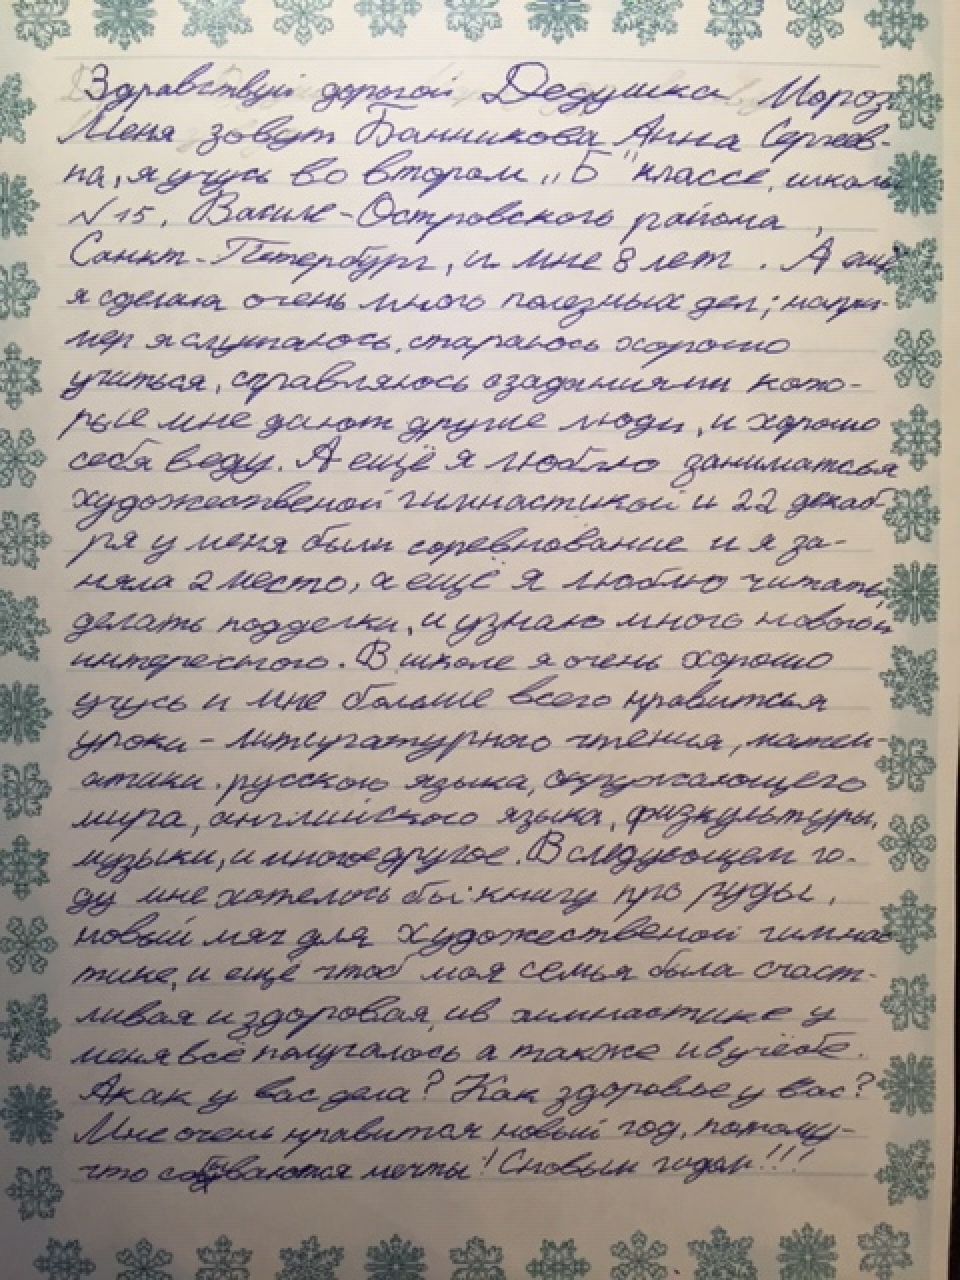 Здравствуй дорогой Дедушка Мороз
Меня зовут Банникова Анна Сергеев-
на, я учусь во втором „Б" классе, школы
№ 15, Василе-Островского района,
Санкт-Петербург, и мне 8 лет. А ещё
я сделала очень много полезных дел; напри-
мер я слушаюсь, стараюсь хорошо
учиться, справляюсь с заданиями кото-
рые мне дают другие люди, и хорошо
себя веду. А ещё я люблю заниматься
художественой гимнастикой и 22 декаб-
ря у меня были соревнование и я за-
няла 2 место, а ещё я люблю читать,
делатьподделки, и узнаю много нового и
интересного. В школе я очень хорошо
учусь и мне больше всего нравиться
уроки - литературного чтения, матем-
атики, русского языка, окружающего
мира, английского языка, физкультуры,
музыки, и многое другое. В следующем го-
ду мне хотелось бы книгу про руды,
новый мяч для художественой гимнас-
тике, и ещё чтоб моя семья была счаст-
ливая и здоровая, и в химнастике у
меня всё получалось а также и в учёбе.
А как у вас дела? Как здоровье у вас?
Мне очень нравится новый год, потому-
что сбываются мечты! С новым годом!!!